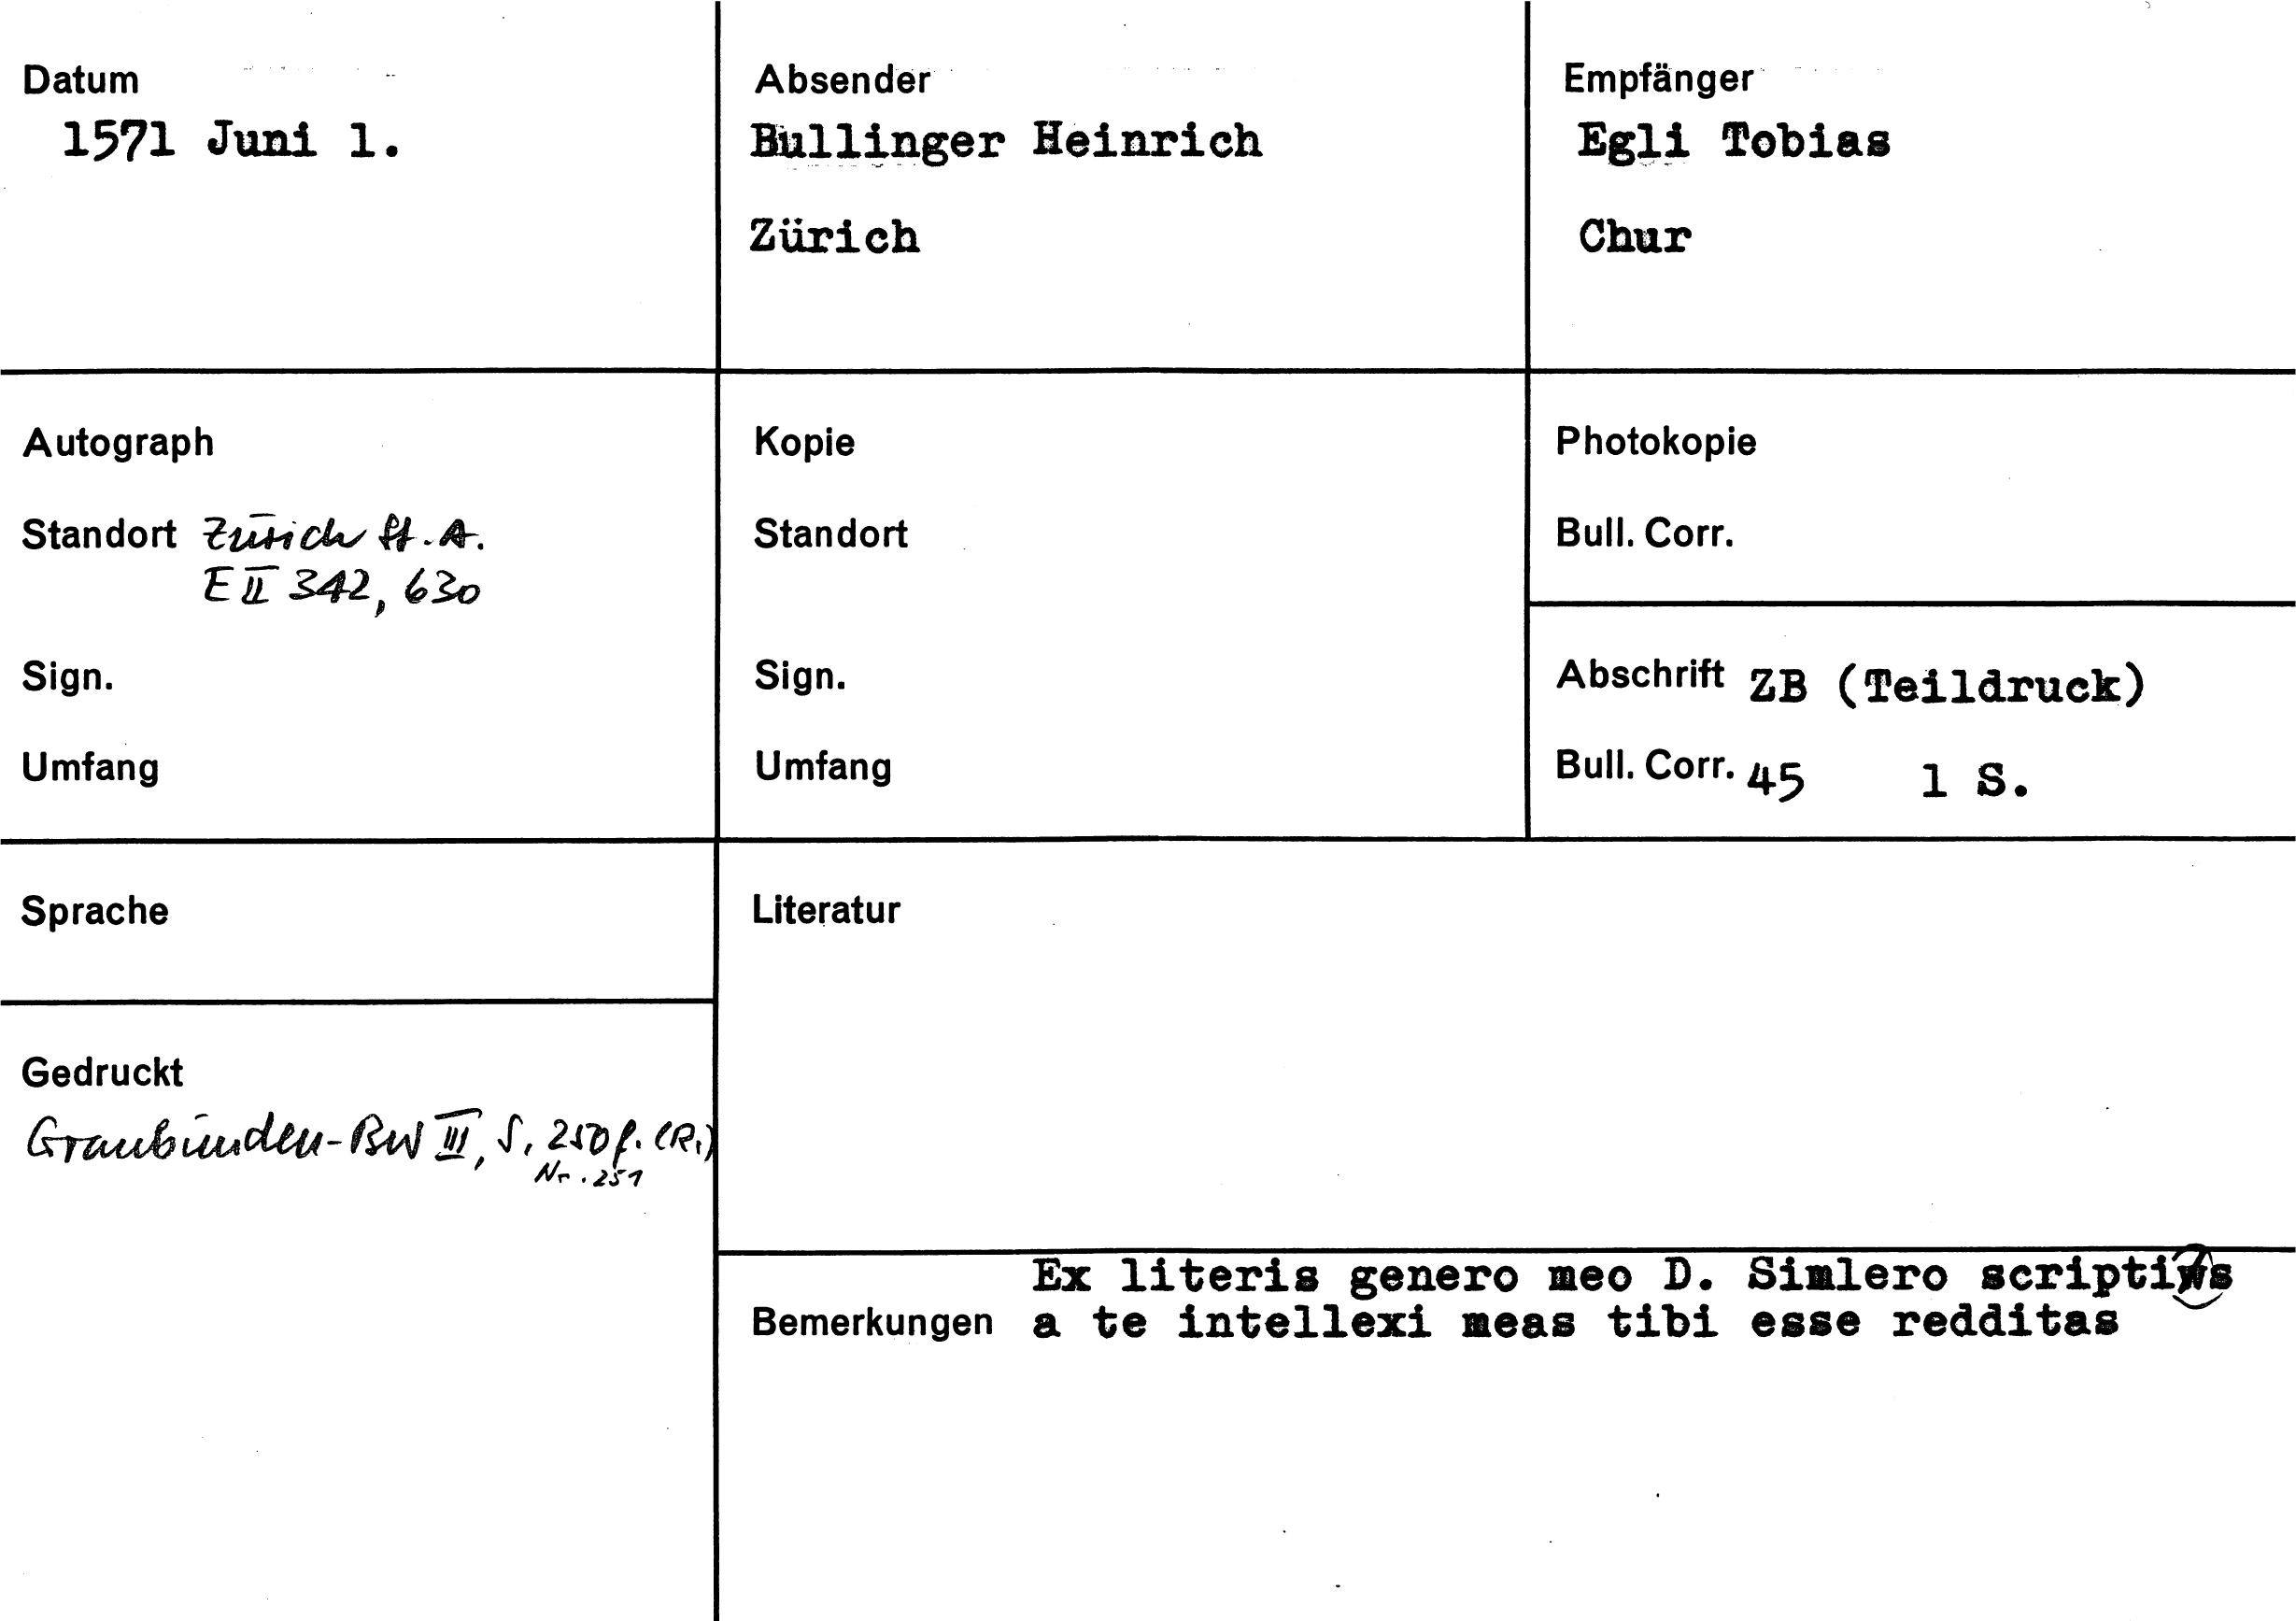 Datum
1571 Juni 1.
Absender
Bullinger Heinrich
Zürich
Empfänger
Egli Tobias
Chur
Autograph
Standort Zürich St.A.
E II 342, 630
Sign.
Umfang
Kopie
Standort
Sign.
Umfang
Photokopie
Bull. Corr.
Abschrift ZB (Teildruck)
Bull. Corr. 45 1 S.
Sprache
Gedruckt
Graubünden-BW III, S. 250f. (R.)
Nr. 251
Literatur
Bemerkungen
Ex literis genero meo D. Simlero scriptis
a te intellexi meas tibi esse redditas